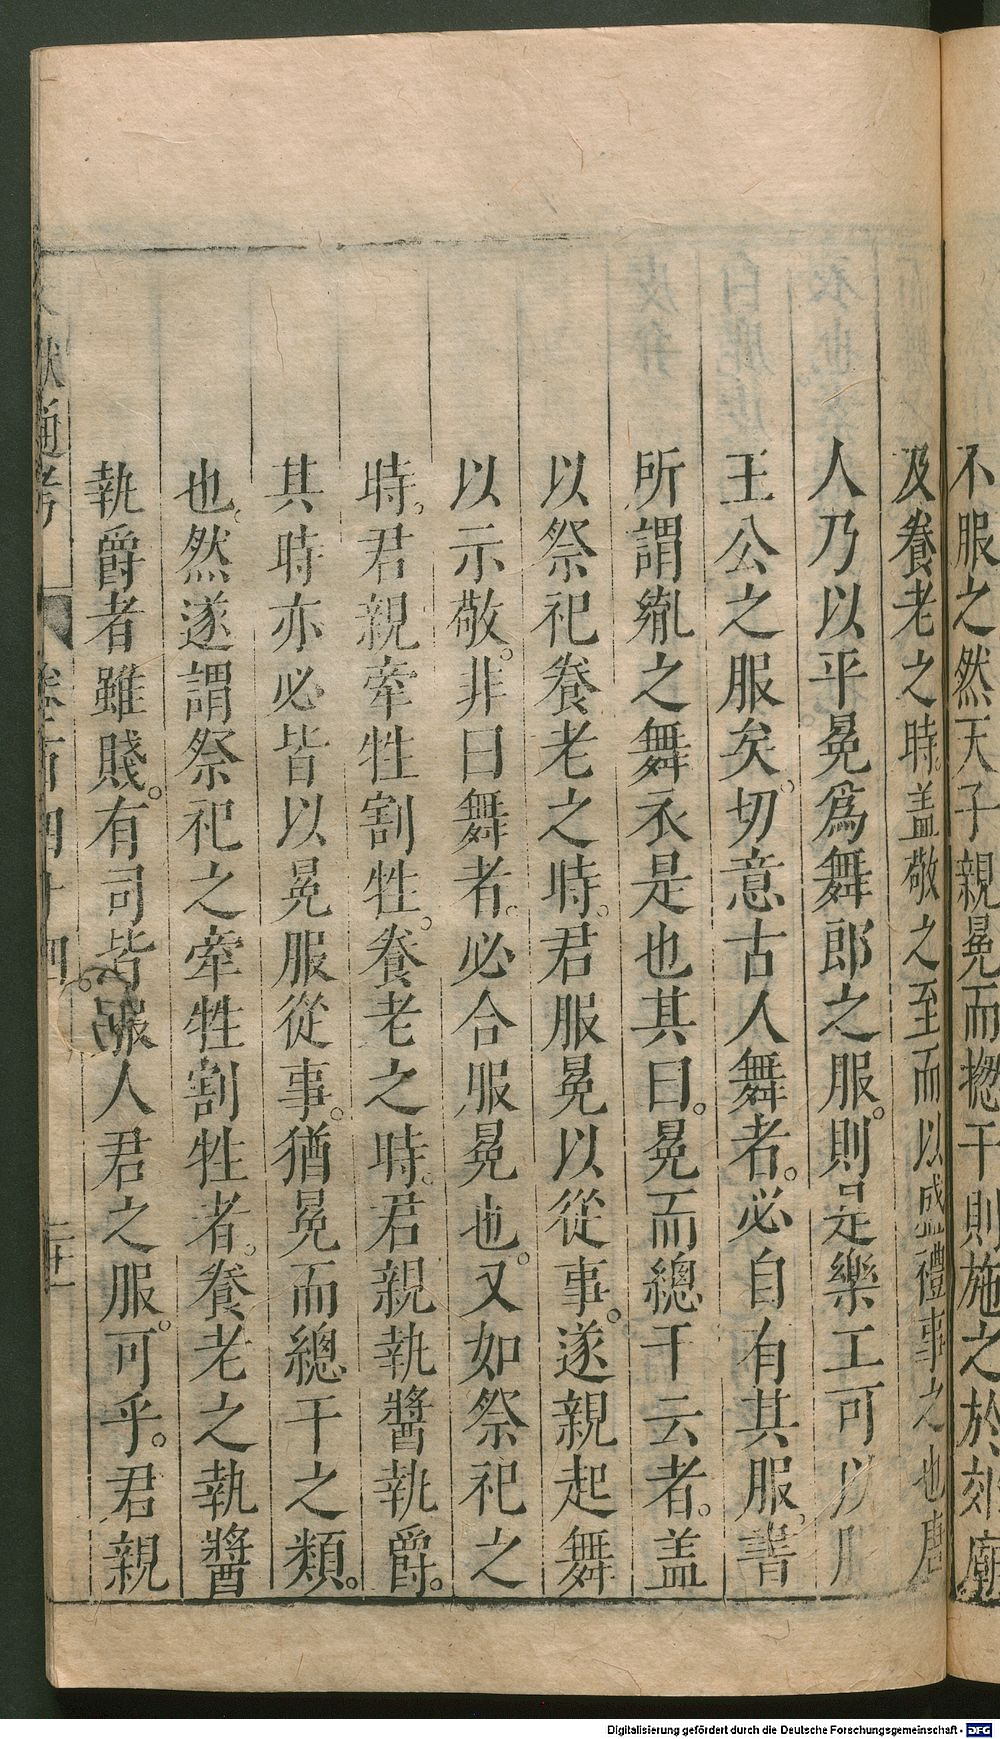 不服之然天子親冕而揔干則施之於郊廟
及養老之時。盖敬之至而以盛禮事之也唐
人乃以平冕爲舞郎之服。則是樂工可以服
王公之服矣。切意古人舞者。必自有其服。書
所謂㣧之舞衣是也其曰。冕而總干云者。盖
以祭祀養老之時。君服冕以從事。遂親起舞
以示敬。非曰舞者。必合服冕也。又如祭祀之
時。君親牽牲割牲。養老之時。君親執醬執爵。
其時亦必皆以冕服從事。猶冕而總干之類。
也。然遂謂祭祀之牽牲割牲者。養老之執醬
執爵者雖賤。有司皆服人君之服。可乎。君親
文獻通考 卷百四十四
Digitalisierung gefördert durch die Deutsche Forschungsgemeinschaft - DFG